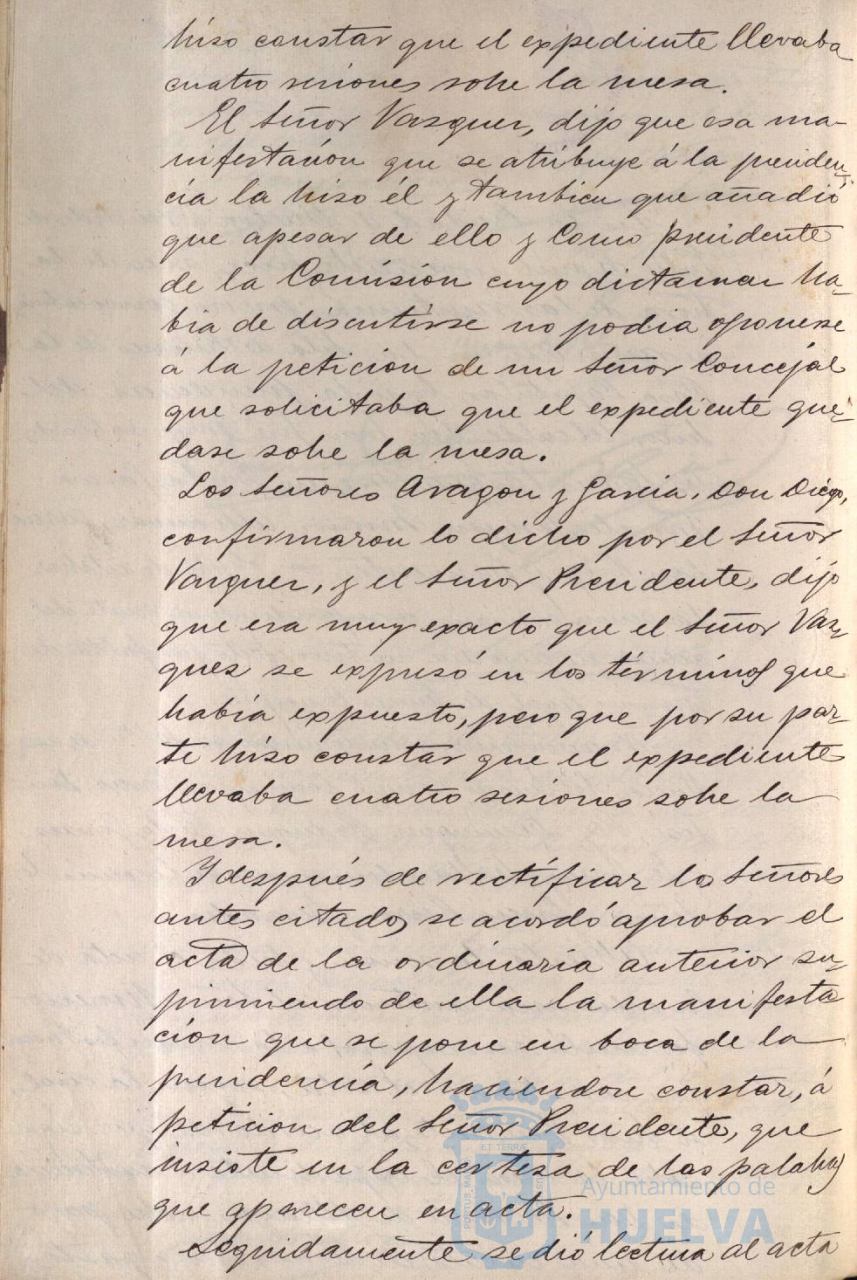 hiso constar que el expediente llevaba
cuatro sesiones sobre la mesa.
El Señor Vasquez, dijo que esa ma-
nifestación que se atribuye á la presiden-
cia la hiso él y tambien que añadió
que apesar de ello y como presidente
de la Comisión cuyo dictamen ha-
bia de discutirse no podia oponerse
á la petición de un Señor Concejal
que solicitaba que el expediente que-
dase sobre la mesa.
Los Señores Aragon y Garcia, Don Diego,
confirmaron lo dicho por el Señor
Vasquez, y el Señor Presidente, dijo
que era muy exacto que el Señor Vas-
quez se expresó en los términos que
había expuesto, pero que por su par-
te hiso constar que el expediente
llevaba cuatro sesiones sobre la
mesa.
Y después de rectificar los Señores
antes citados se acordó aprobar el
acta de la ordinaria anterior su-
primiendo de ella la manifesta
ción que se pone en boca de la
presidencia, haciendose constar, á
petición del Señor Presidente, que
insiste en la certesa de las palabras
que aparecen en acta.
Seguidamente se dió lectura al acta
ET TERRÆ
Ayuntamiento de
HUELVA